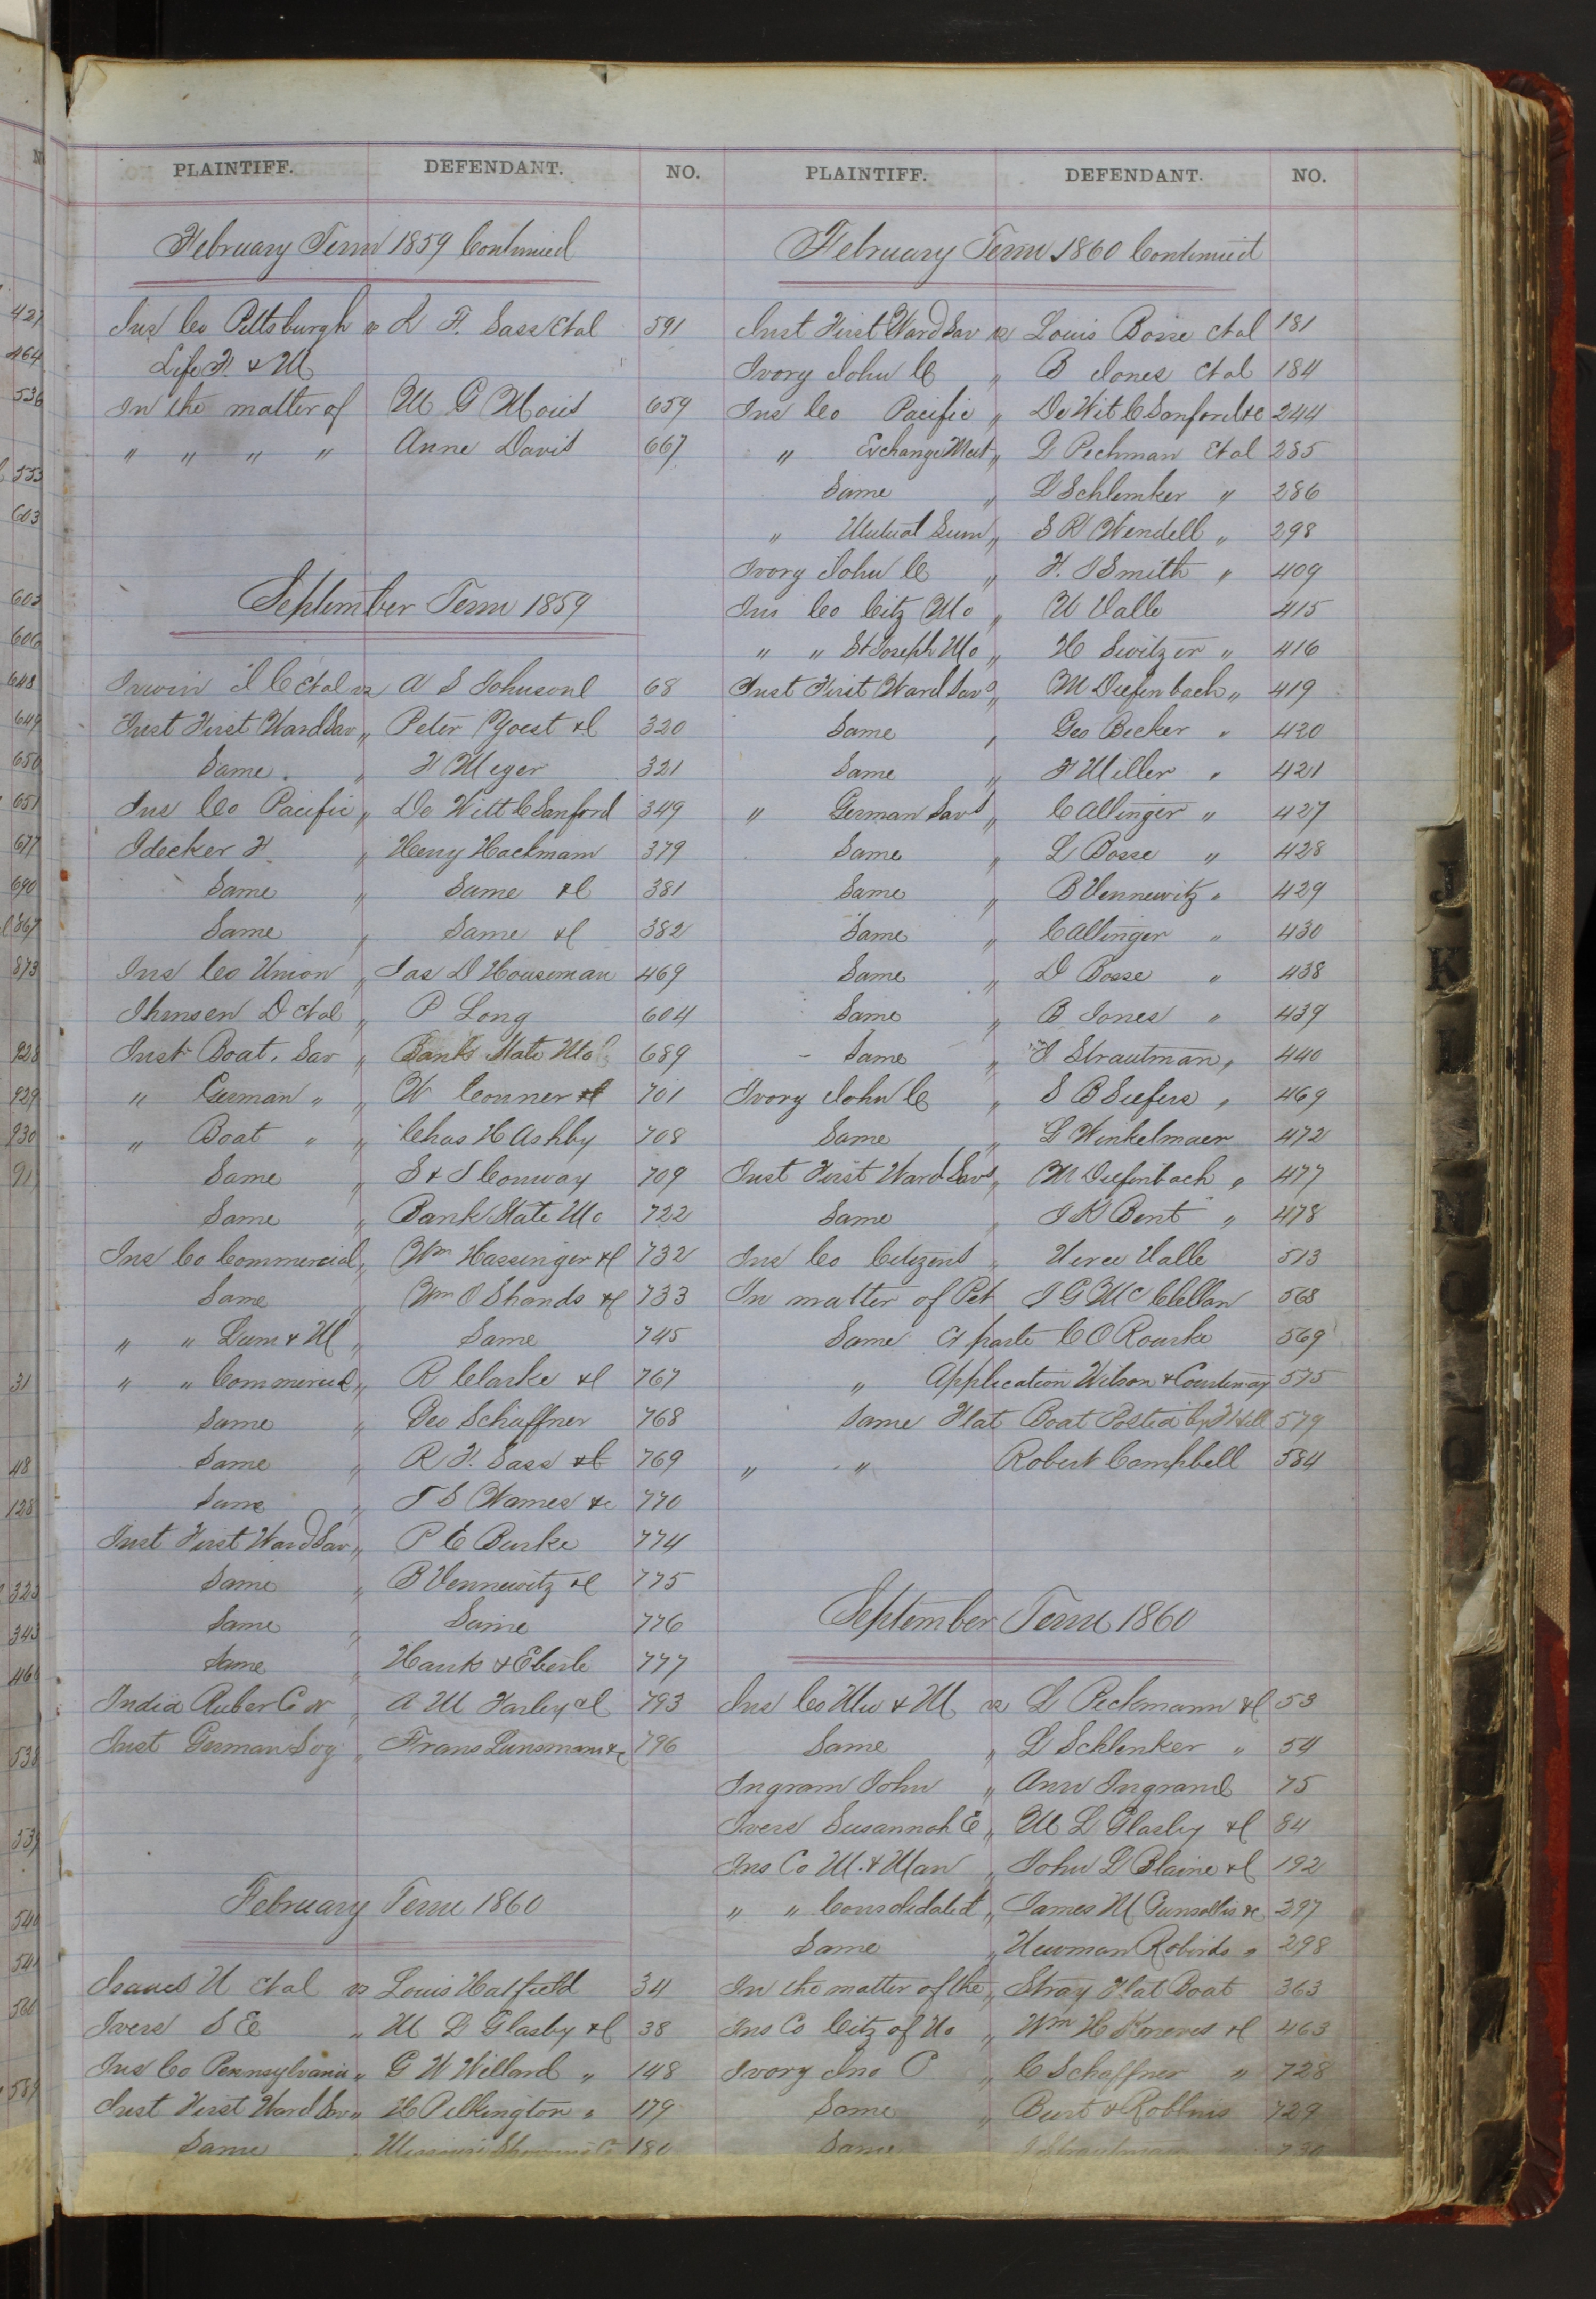 PLAINTIFF. DEFENDANT. NO.
February Term 1859 Continued
Ins Co Pittsburgh vs R F. Sass et al 591
Life F. & M
In the matter of M G Moies 659
" " " " Anne Davis 667
September Term 1859
Irwin J C et al vs A S Johnson &c 68
Inst First Ward Sav " Peter Yoest &c 320
Same " F Meyer 321
Ins Co Pacific " De Witt C Sanford 349
Idecker F " Henry Hackmann 379
Same " Same &c 381
Same " Same &c 382
Ins Co Union " Jas D Houseman 469
Ihmsen D et al " P Long 604
Inst Boat. Sav " Bank State Mo 689
" German " " W Conner &c 701
" Boat " " Chas H Ashby 708
Same " S & J Conway 709
Same " Bank State Mo 722
Ins Co Commercial " Wm Hassinger &c 732
Same " Wm O Shands &c 733
" " Lum & M " Same 745
" " Commercial " R Clarke &c 767
Same " Geo Schaffner 768
Same " R F. Sass &c 769
Same " T S Warnes &c 770
Inst First Ward Sav " P E Burke 774
Same " B Vennewitz &c 775
Same " Same 776
Same " Hauk & Eberle 777
India Ruber Co N " A M Farley &c 793
Inst German Svg " Frans Lunsmann &c 796
February Term 1860
Isaacs H et al vs Louis Hatfield 34
Ivers S E " M L Glasby &c 38
Ins Co Pennsylvania " G W Willard " 148
Inst First Ward Sav " H Pilkington " 179
Same " Missouri Co 180
PLAINTIFF. DEFENDANT. NO.
February Term 1860 Continued
Inst First Ward Sav vs Louis Bosse et al 181
Ivory John C " B Jones et al 184
Ins Co Pacific " De Wit C Sanford &c 244
" Exchange Mut " L Pechman et al 285
Same " L Schlemker " 286
" Mutual Lum " S R Wendell " 298
Ivory John C " F. J Smith " 409
Ins Co Citz Mo " N Valle 415
" " St Joseph Mo " H Switzer " 416
Inst First Ward Sav " M Diefenbach " 419
Same " Geo Becker " 420
Same " F Miller " 421
" German Savs " C Allinger " 427
Same " L Bosse " 428
Same " B Vennewitz " 429
Same " C Allinger " 430
Same " L Bosse " 438
Same " B Jones " 439
Same " J Strautman " 440
Ivory John C " S B Siefers " 469
Same " L Winkelmaer 472
Inst First Ward Savs " M Diefenbach " 477
Same " J K Bent " 478
Ins Co Citizens " Neree Valle 513
In matter of Pet J G McClellan 568
Same Ex parte C O Rourke 569
" Application Wilson & Courtenay 575
Same Flat Boat Posted by Hill 579
" " Robert Campbell 584
September Term 1860
Ins Co Mu & M vs L Peckmann &c 53
Same " L Schlenker " 54
Ingram John " Ann Ingram 75
Ivers Susannah E " M L Glasby &c 84
Ins Co M. & Man " John L Blaine &c 192
" " Consolidated " James M Gunsollis &c 297
Same " Newman Robirds " 298
In the matter of the " Stray Flat Boat 363
Ins Co Citz of Mo " Wm H &c 463
Ivory Jno C " C Schaffner " 728
Same " Burt & Robbins 729
Same J Strautman 730
J
K
L
M
N
O